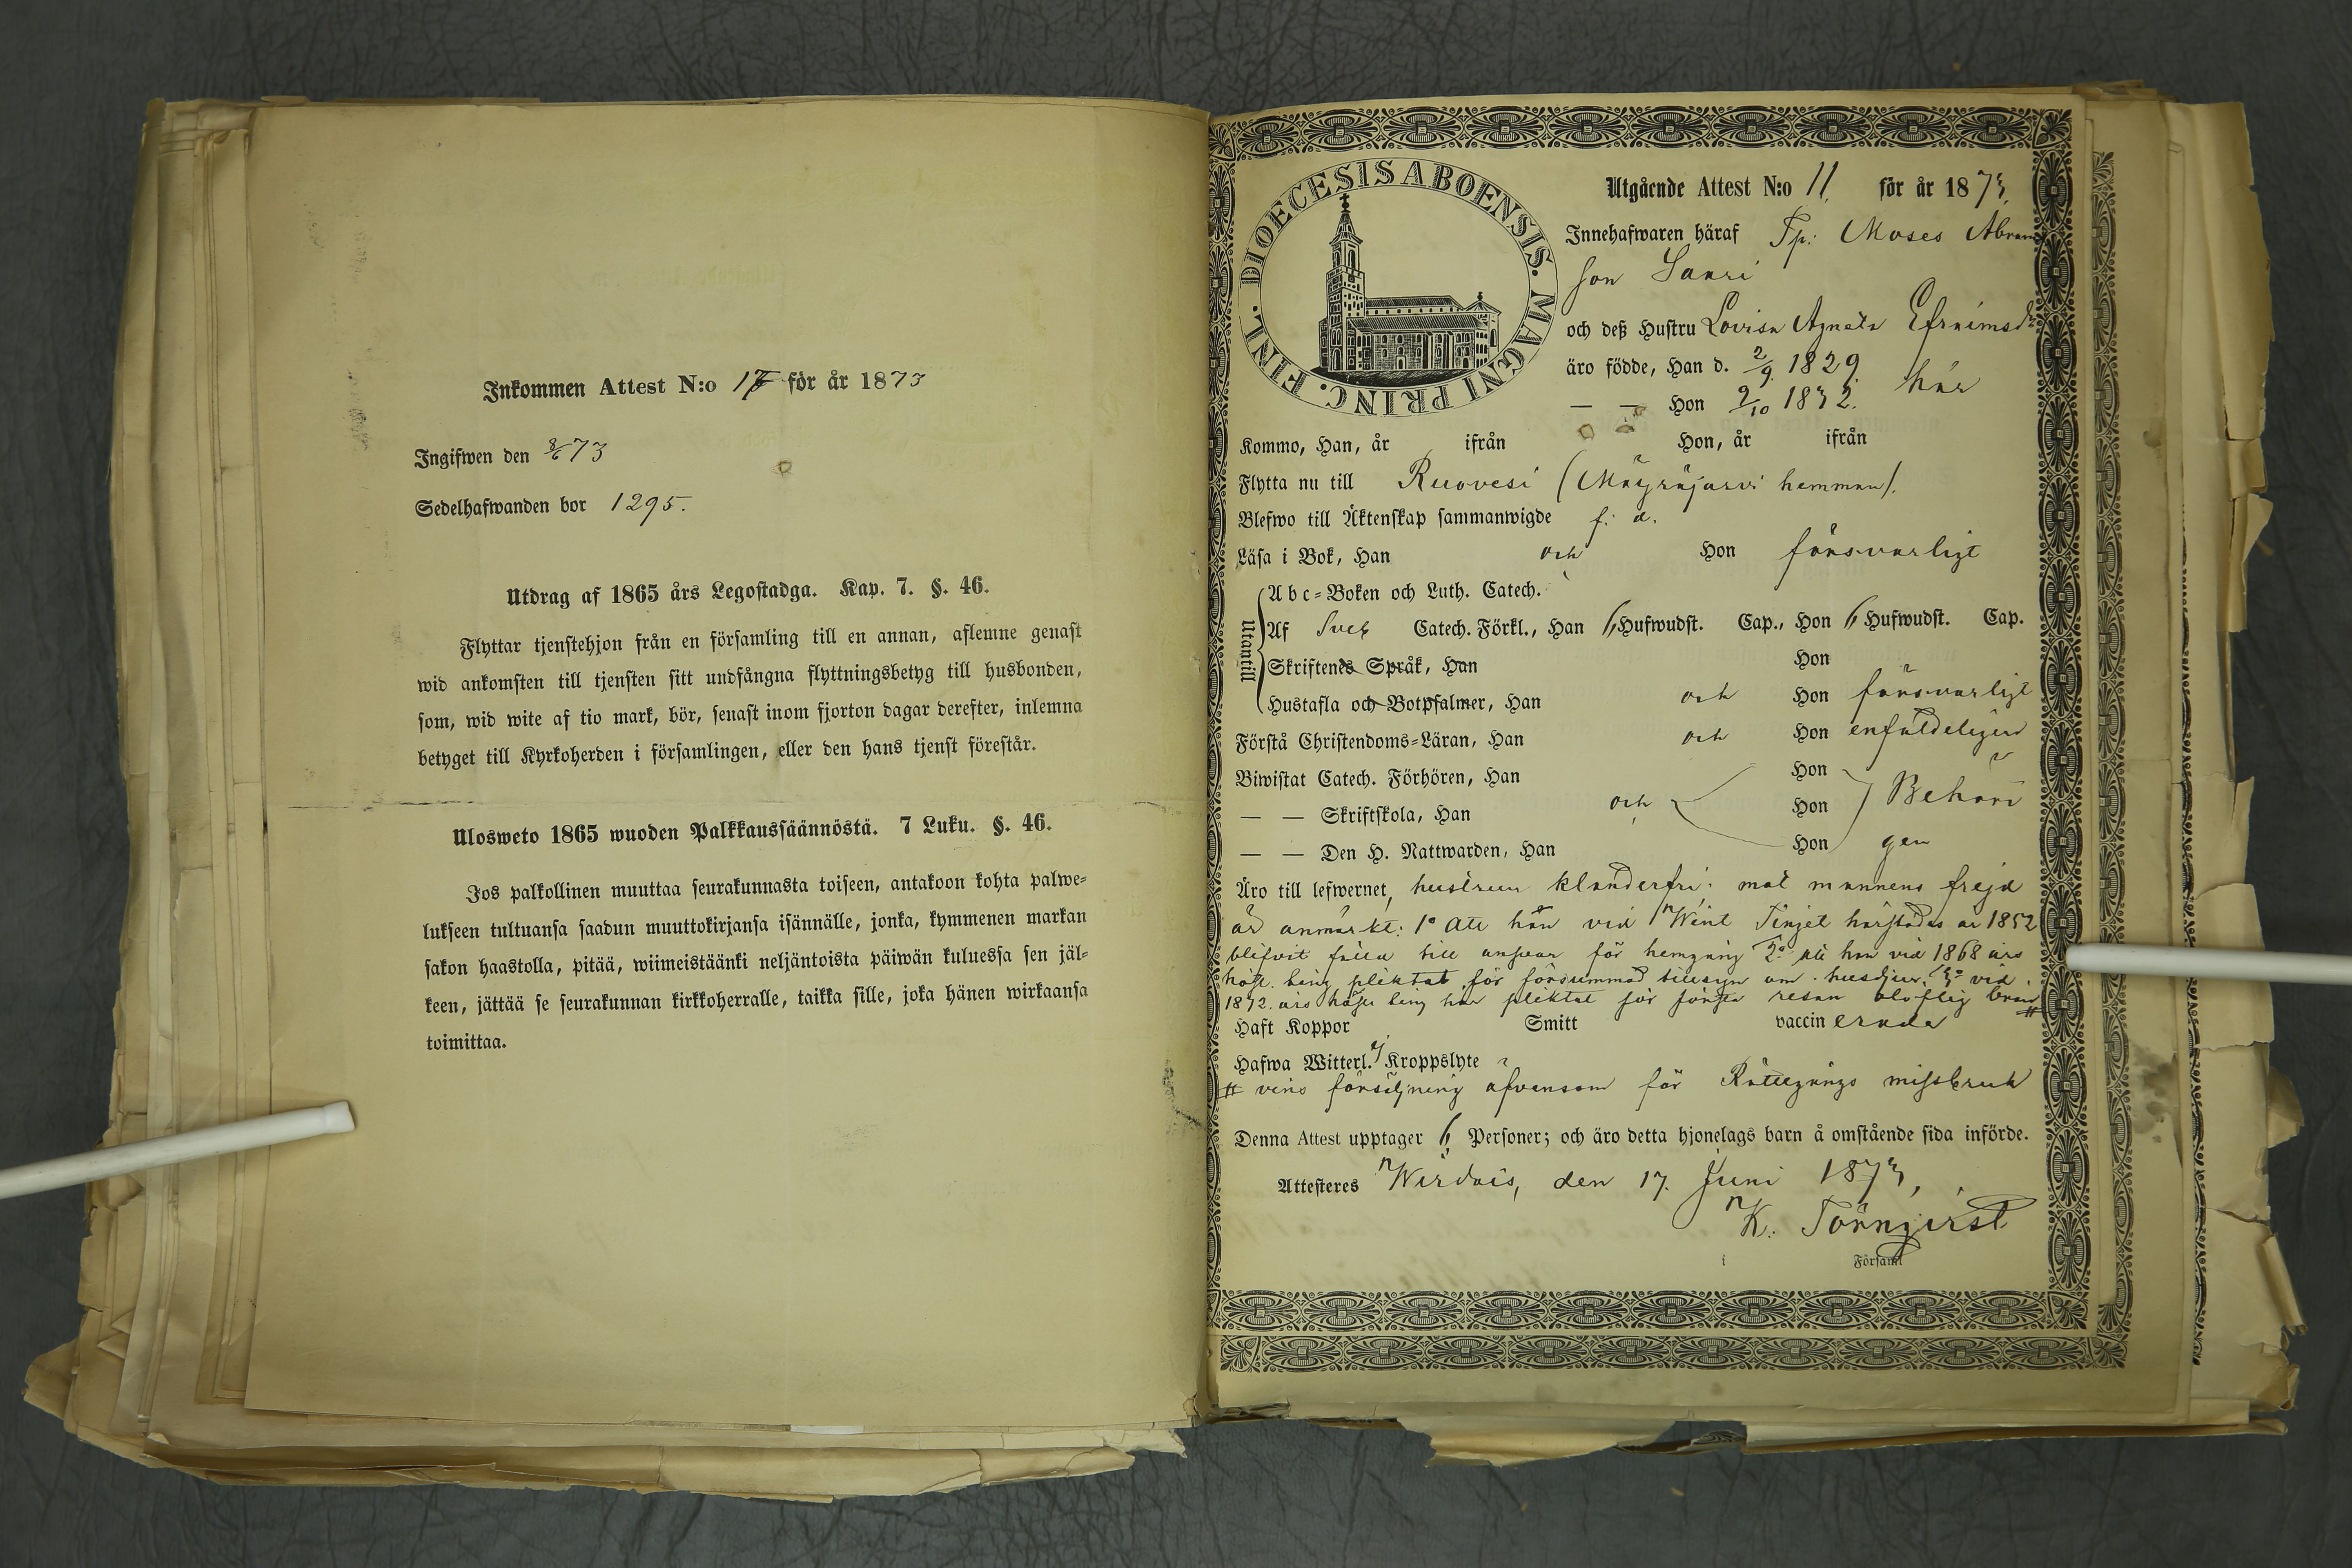 Inkommen Attest N:o 17 för år 1873
Ingifwen den 8/6 73
Sedelhafwanden bor 1295.
Utdrag af 1865 års Legostadga. Kap. 7. §. 46.
Flyttar tjenstehjon från en församling till en annan, aflemne genast
wid ankomsten till tjensten sitt undfångna flyttningsbetyg till husbonden,
som, wid wite af tio mark, bör, senast inom fjorton dagar derefter, inlemna
betyget till Kyrkoherden i församlingen, eller den hans tjenst förestår.
Ulosweto 1865 wuoden Palkkaussäännöstä. 7 Luku. §. 46.
Jos palkollinen muuttaa seurakunnasta toiseen, antakoon kohta palwe-
lukseen tultuansa saadun muuttokirjansa isännälle, jonka, kymmenen markan
sakon haastolla, pitää, wiimeistäänki neljäntoista päiwän kuluessa sen jäl-
keen, jättää se seurakunnan kirkkoherralle, taikka sille, joka hänen wirkaansa
toimittaa.
DIOECESIS ABOENSIS. MAGNI PRINC. FINL.
Utgående Attest N:o 11. för år 1873.
Innehafwaren häraf Tp: Moses Abram
son Saari
och deß Hustru Lovisa Agneta Efraimsdr
äro födde, Han d. 2/9. 1829. här
— — Hon 2/10 1832.
Kommo, Han, år ifrån Hon, år ifrån
Flytta nu till Ruovesi (Mäyräjärvi hemman).
Blefwo till Äktenskap sammanwigde f. d.
Läsa i Bok, Han och Hon försvarligt
Utantill
Abc-Boken och Luth. Catech.
Af Sveb Catech. Förkl., Han 6 Hufwudst. Cap., Hon 6 Hufwudst. Cap.
Skriftenes Språk, Han Hon
Hustafla och Botpsalmer, Han och Hon försvarligt
Förstå Christendoms-Läran, Han och Hon enfaldeligen
Biwistat Catech. Förhören, Han Hon
— — Skriftskola, Han och Hon Behöri
— — Den H. Nattwarden, Han Hon gen
Äro till lefwernet, hustrun klanderfri: mot mannens frejd
är anmärkt: 1° att han vid Wint. Tinget härstädes år 1852
blifvit fälld till ansvar för hemgång 2° att han vid 1868 års
höst ting pliktat för försummad tillsyn om husdjur. 3° vid
1872 års höste ting har pliktat för första resan oloflig brän
Haft Koppor Smitt vaccinerade
Hafwa Witterl. ej Kroppslyte
# vins försäljning äfvensom för Rättegångs missbruk
Denna Attest upptager 6 Personer; och äro detta hjonelags barn å omstående sida införde.
Attesteras Wirdois, den 17. Juni 1873,
K. Törnqvist
i Församl